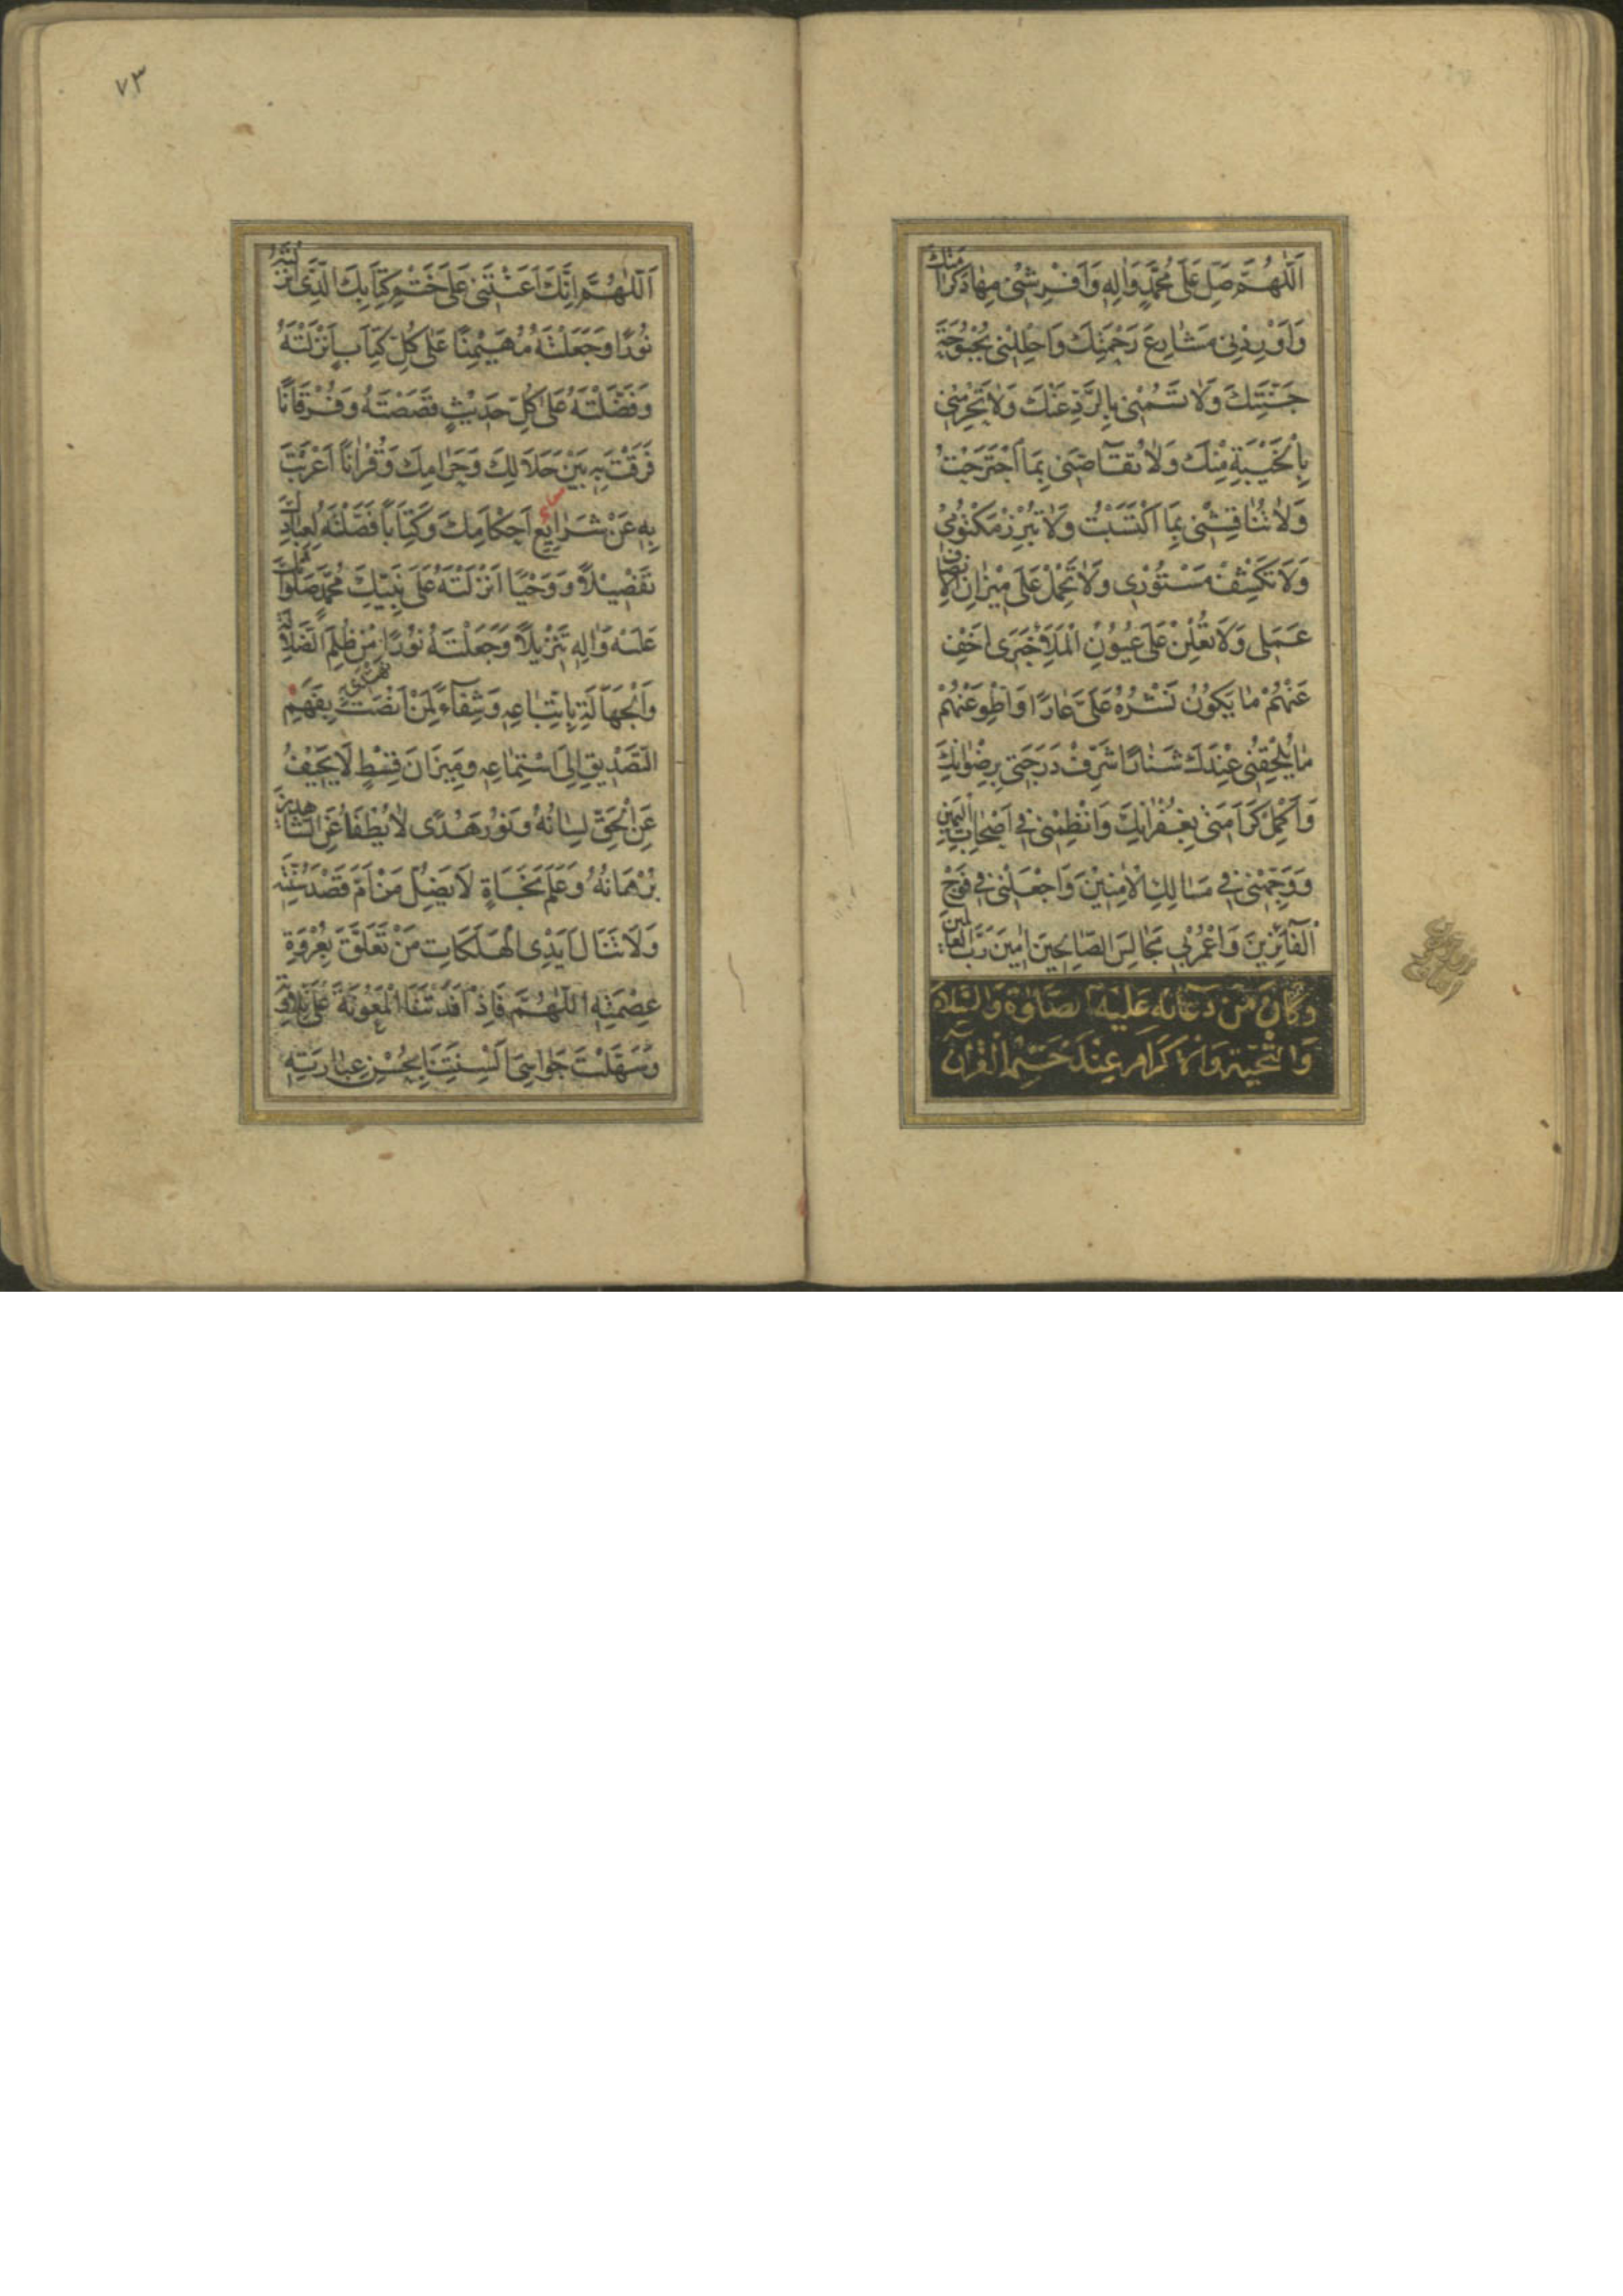 اَللّٰهُمَّ صَلِّ عَلٰى مُحَمَّدٍ وَاٰلِهِ وَاَفْرِشْنِى مِهَادَ كَرَامَتِكَ
وَاَوْرِدْنِى مَشَارِعَ رَحْمَتِكَ وَاَحْلِلْنِى بُحْبُوحَةَ
جَنَّتِكَ وَلَا تَسُمْنِى بِالرَّدِّ عَنْكَ وَلَا تَحْرِمْنِى
بِالْخَيْبَةِ مِنْكَ وَلَا تُقَآصِّنِى بِمَا اَجْتَرَحْتُ
وَلَا تُنَاقِشْنِى بِمَا اَكْتَسَبْتُ وَلَا تُبْرِزْ مَكْتُوْمِىْ
وَلَا تَكْشِفْ مَسْتُوْرِى وَلَا تَحْمِلْ عَلٰى مِيْزَانِ الْاِنْصَافِ
عَمَلِى وَلَا تُعْلِنْ عَلٰى عُيُوْنِ الْمَلَاِ خَبَرِى اَخْفِ
عَنْهُمْ مَا يَكُوْنُ نَشْرُهُ عَلَىَّ عَارًا وَاَطْوِ عَنْهُمْ
مَا يُلْحِقُنِى عِنْدَكَ شَنَارًا شَرِّفْ دَرَجَتِى بِرِضْوَانِكَ
وَاَكْمِلْ كَرَامَتِى بِغُفْرَانِكَ وَانْظِمْنِى فِى اَصْحَابِ الْيَمِيْنِ
وَوَجِّهْنِى فِى مَسَالِكِ الْاٰمِنِيْنَ وَاجْعَلْنِى فِى فَوْجِ
الْفَآئِزِيْنَ وَاعْمُرْ بِى مَجَالِسَ الصَّالِحِيْنَ اٰمِيْنَ رَبَّ الْعَالَمِيْنَ
وَكَانَ مِنْ دُعَآئِهِ عَلَيْهِ الصَّلٰوةُ وَالسَّلَامُ
وَالتَّحِيَّةُ وَالْاِكْرَامُ عِنْدَ خَتْمِ الْقُرْآنِ
٧٣
اَللّٰهُمَّ اِنَّكَ اَعَنْتَنِى عَلٰى خَتْمِ كِتَابِكَ الَّذِى اَنْزَلْتَهُ
نُوْرًا وَجَعَلْتَهُ مُهَيْمِنًا عَلٰى كُلِّ كِتَابٍ اَنْزَلْتَهُ
وَفَضَّلْتَهُ عَلٰى كُلِّ حَدِيْثٍ قَصَصْتَهُ وَفُرْقَانًا
فَرَقْتَ بِهِ بَيْنَ حَلَالِكَ وَحَرَامِكَ وَقُرْاٰنًا اَعْرَبْتَ
بِهِ عَنْ شَرَايِعِ اَحْكَامِكَ وَكِتَابًا فَصَّلْتَهُ لِعِبَادِكَ
تَفْصِيْلًا وَوَحْيًا اَنْزَلْتَهُ عَلٰى نَبِيِّكَ مُحَمَّدٍ صَلَوَاتُكَ
عَلَيْهِ وَاٰلِهِ تَنْزِيْلًا وَجَعَلْتَهُ نُوْرًا نَهْتَدِى مِنْ ظُلَمِ الضَّلَالَةِ
وَالْجَهَالَةِ بِاتِّبَاعِهِ وَشِفَآءً لِمَنْ اَنْصَتَ بِفَهْمِ
التَّصْدِيْقِ اِلَى اسْتِمَاعِهِ وَمِيْزَانَ قِسْطٍ لَا يَحِيْفُ
عَنِ الْحَقِّ لِسَانُهُ وَنُوْرَ هُدًى لَا يُطْفَاُ عَنِ الشَّاهِدِيْنَ
بُرْهَانُهُ وَعَلَمَ نَجَاةٍ لَا يَضِلُّ مَنْ اَمَّ قَصْدَ سُنَّتِهِ
وَلَا تَنَالُ اَيْدِى الْهَلَكَاتِ مَنْ تَعَلَّقَ بِعُرْوَةِ
عِصْمَتِهِ اللّٰهُمَّ فَاِذْ اَفَدْتَنَا الْمَعُوْنَةَ عَلٰى تِلَاوَتِهِ
وَسَهَّلْتَ جَوَاسِىَ اَلْسِنَتِنَا بِحُسْنِ عِبَارَتِهِ